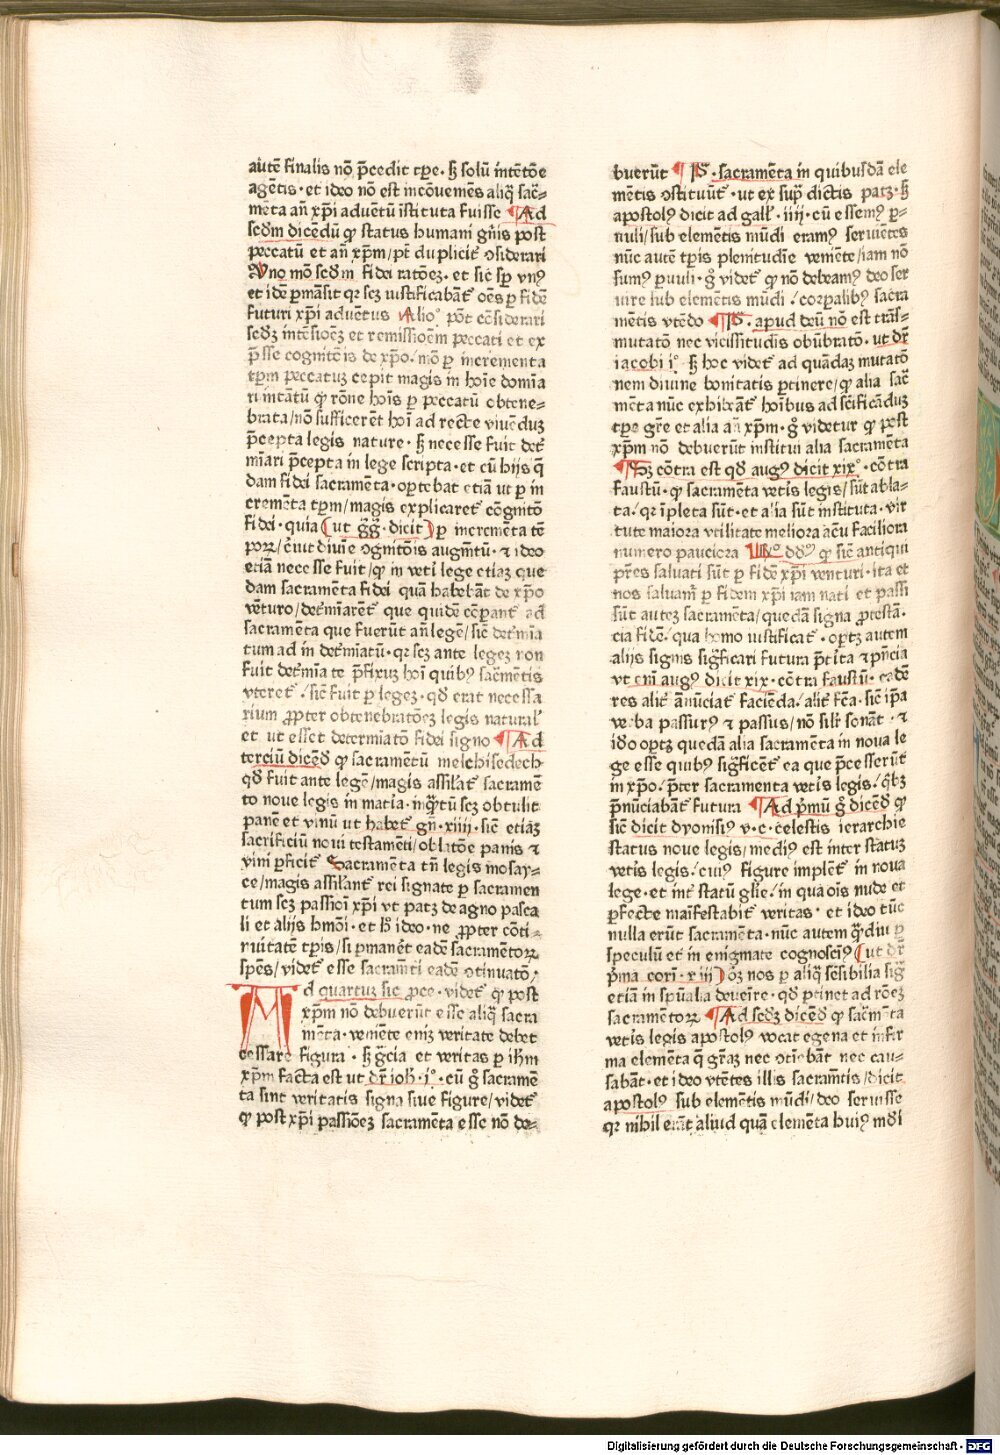 autē finalis nō p̄cedit tꝑe · ꝫ solū intētōe
agētis · et ideo nō est incōueniēs aliq̄ sac̄-
mēta an̄ xp̄i aduētū īstituta fuisse ¶ Ad
scdm dicēdū ꝙ status humani gn̄is post
peccatū et an̄ xp̄m / pt̄ dupliciť ꝯsiderari
Vno mō scdm fidei ratōeꝫ · et sic̄ sꝑ vnꝰ
et idē ꝑmāsit qꝛ scꝫ iustificabāt̄ oēs ꝑ fidē
futuri xp̄i aduētus Alioº pōt cōsiderari
scdꝫ intēsioēꝫ et remissioēm peccati et ex
p̄sse cognitōis de xp̄o · nō ꝑ incrementa
tꝑm peccatuꝫ cepit magis in hoīe domīa
ri intātū ꝙ rōne hoīs ꝑ peccatū obtene-
brata / nō sufficerēt hoī ad recte viuēduꝫ
p̄cepta legis nature · ꝫ necesse fuit det̄
mīari p̄cepta in lege scripta · et cū hijs q̄
dam fidei sacramēta · oꝑtebat etiā ut ꝑ in
cremēta tꝑm / magis explicaret̄ cōgnitō
fidei · quia ( ut gg̃ · dicit ) ꝑ incremēta tē
poꝝ / c̄uit diuīe ꝯgnitōis augm̄tū · ⁊ ideo
etiā necesse fuit / ꝙ in veťi lege etiaꝫ que
dam sacramēta fidei quā habebāt de xp̄o
vēturo / det̄miarēt̄ que quidē cōꝑant̄ ad
sacramēta que fuerūt an̄ legē / sic̄ det̄mīa
tum ad in det̄miatū · qꝛ scꝫ ante legeꝫ non
fuit det̄mīate p̄fixuꝫ hoī quibꝰ sac̄mētis
vteret̄ / sic̄ fuit ꝑ legeꝫ · qd̄ erat necessa
rium ꝓpter obtenebratōeꝫ legis naturał
et ut esset determiatō fidei signo ¶ Ad
terciū dicēd ꝙ sacramētū melchisedech
qd̄ fuit ante legē / magis assilaẗ sacramē
to noue legis in matia · inq̄tū scꝫ obtulit
panē et vinū ut habet̄ gn̄ · xiiii · sic̄ etiaꝫ
sacrificiū noui testamēti / oblatōe panis ⁊
vini ꝑficit̄ Sacramēta tn̄ legis mosay-
ce / magis assilant̄ rei signate ꝑ sacramen
tum scꝫ passiōi xp̄i vt patꝫ de agno pasca
li et alijs hmōi · et hͦ ideo · ne ꝓpter cōti-
nuitatē tꝑis / si ꝑmanēt eadē sacramētoꝝ
sp̄es / videt̄ esse sacram̄ti eadē ꝯtinuatō /
Ad quartuꝫ sic ꝓce · videt̄ ꝙ post
xp̄m nō debuerūt esse aliq̄ sacra
mēta · veniēte eniꝫ veritate debet
cessare figura · ꝫ gͨcia et veritas ꝑ ih̄m
xp̄m facta est ut dr̄ ioh̄ · iº · cū g̊ sacramē
ta sint veritatis signa siue figure / videt̄
ꝙ post xp̄i passiōeꝫ sacramēta esse nō de-
buerūt ¶ P̄ · sacramēta in quibusdā ele
mētis ꝯstituūt̄ · ut ex sup̄ dictis patꝫ · ꝫ
apostolꝰ dicit ad gall̄ · iiii · cū essemꝰ p̄-
uuli / sub elemētis mūdi eramꝰ seruiētes
nūc autē tꝑis plenitudīe veniēte / iam nō
sumꝰ ꝑuuli · g̊ videt̄ ꝙ nō debeamꝰ deo ser
uire sub elemētis mūdi / corꝑalibꝰ sacra
mētis vtēdo ¶ P̄ · apud deū nō est trās-
mutatō nec vicissitudis obūbratō · ut dr̄
iacobi iº · ꝫ hoc videt̄ ad quādaꝫ mutatō
nem diuine bonitatis ꝑtinere / ꝙ alia sac̄
mēta nūc exhibeāt̄ hoībus ad sc̄ificāduꝫ
tꝑe gr̄e et alia an̄ xp̄m · g̊ videtur ꝙ post
xp̄m nō debuerūt institui alia sacramēta
¶ Sꝫ cōtra est qd̄ augꝰ dicit xixº · cōtra
faustū · ꝙ sacramēta veťis legis / sūt abla-
ta / qꝛ īpleta sūt · et alia sūt īnstituta · vir
tute maiora vtilitate meliora actu faciliora
numero pauciora Rº dd̄ꝰ ꝙ sic̄ antiqui
pr̄es saluati sūt ꝑ fidē xp̄i venturi · ita et
nos saluam̄ ꝑ fidem xp̄i iam nati et passi
sūt auteꝫ sacramēta / quedā signa ꝓtestā-
cia fidē / qua homo iustificat̄ · oꝑtꝫ autem
alijs signis sig̃ficari futura p̄tita ⁊ p̄ncia
vt eni augꝰ dicit xix · cōtra faustū · eadē
res alit̄ annūciat̄ faciēda / alit̄ fc̄a · sic īp̄a
verba passurꝰ ⁊ passus / nō silr̄ sonāt · ⁊
ido oꝑtꝫ quedā alia sacramēta in noua le
ge esse quibꝰ sig̃ficēt̄ ea que p̄cesserūt
in xp̄o / p̄ter sacramenta veťis legis / q̄bꝫ
p̄nūciabāt̄ futura ¶ Ad pͥmū g̊ dicēd ꝙ
sic̄ dicit dyonisiꝰ v · c · celestis ierarchie
status noue legis / mediꝰ est inter statuꝫ
veťis legis / cuiꝰ figure implēt̄ in noua
lege · et int̄ statū glīe / in qua oīs nude et
ꝑfecte maīfestabit̄ veritas · et ideo tūc
nulla erūt sacramēta · nūc autem q̄diu ꝑ
speculū et in enigmate cognoscīꝰ ( ut dr̄
pͥma corī · xiij ) oꝫ nos ꝑ aliq̄ sēsibilia sig̃
etiā in spūalia deueīre · qd̄ ꝑtinet ad rōeꝫ
sacramētoꝝ ¶ Ad scdꝫ dicēd ꝙ sac̄mēta
veťis legis apostolꝰ vocat egena et infir
ma elemēta q̄ gr̄aꝫ nec ꝯtiēbāt nec cau-
sabāt · et ideo vtētes illis sacram̄tis / dicit
apostolꝰ sub elemētis mūdi / deo seruisse
qꝛ nihil erāt aliud quā elemēta huiꝰ mūdi
Digitalisierung gefördert durch die Deutsche Forschungsgemeinschaft - DFG